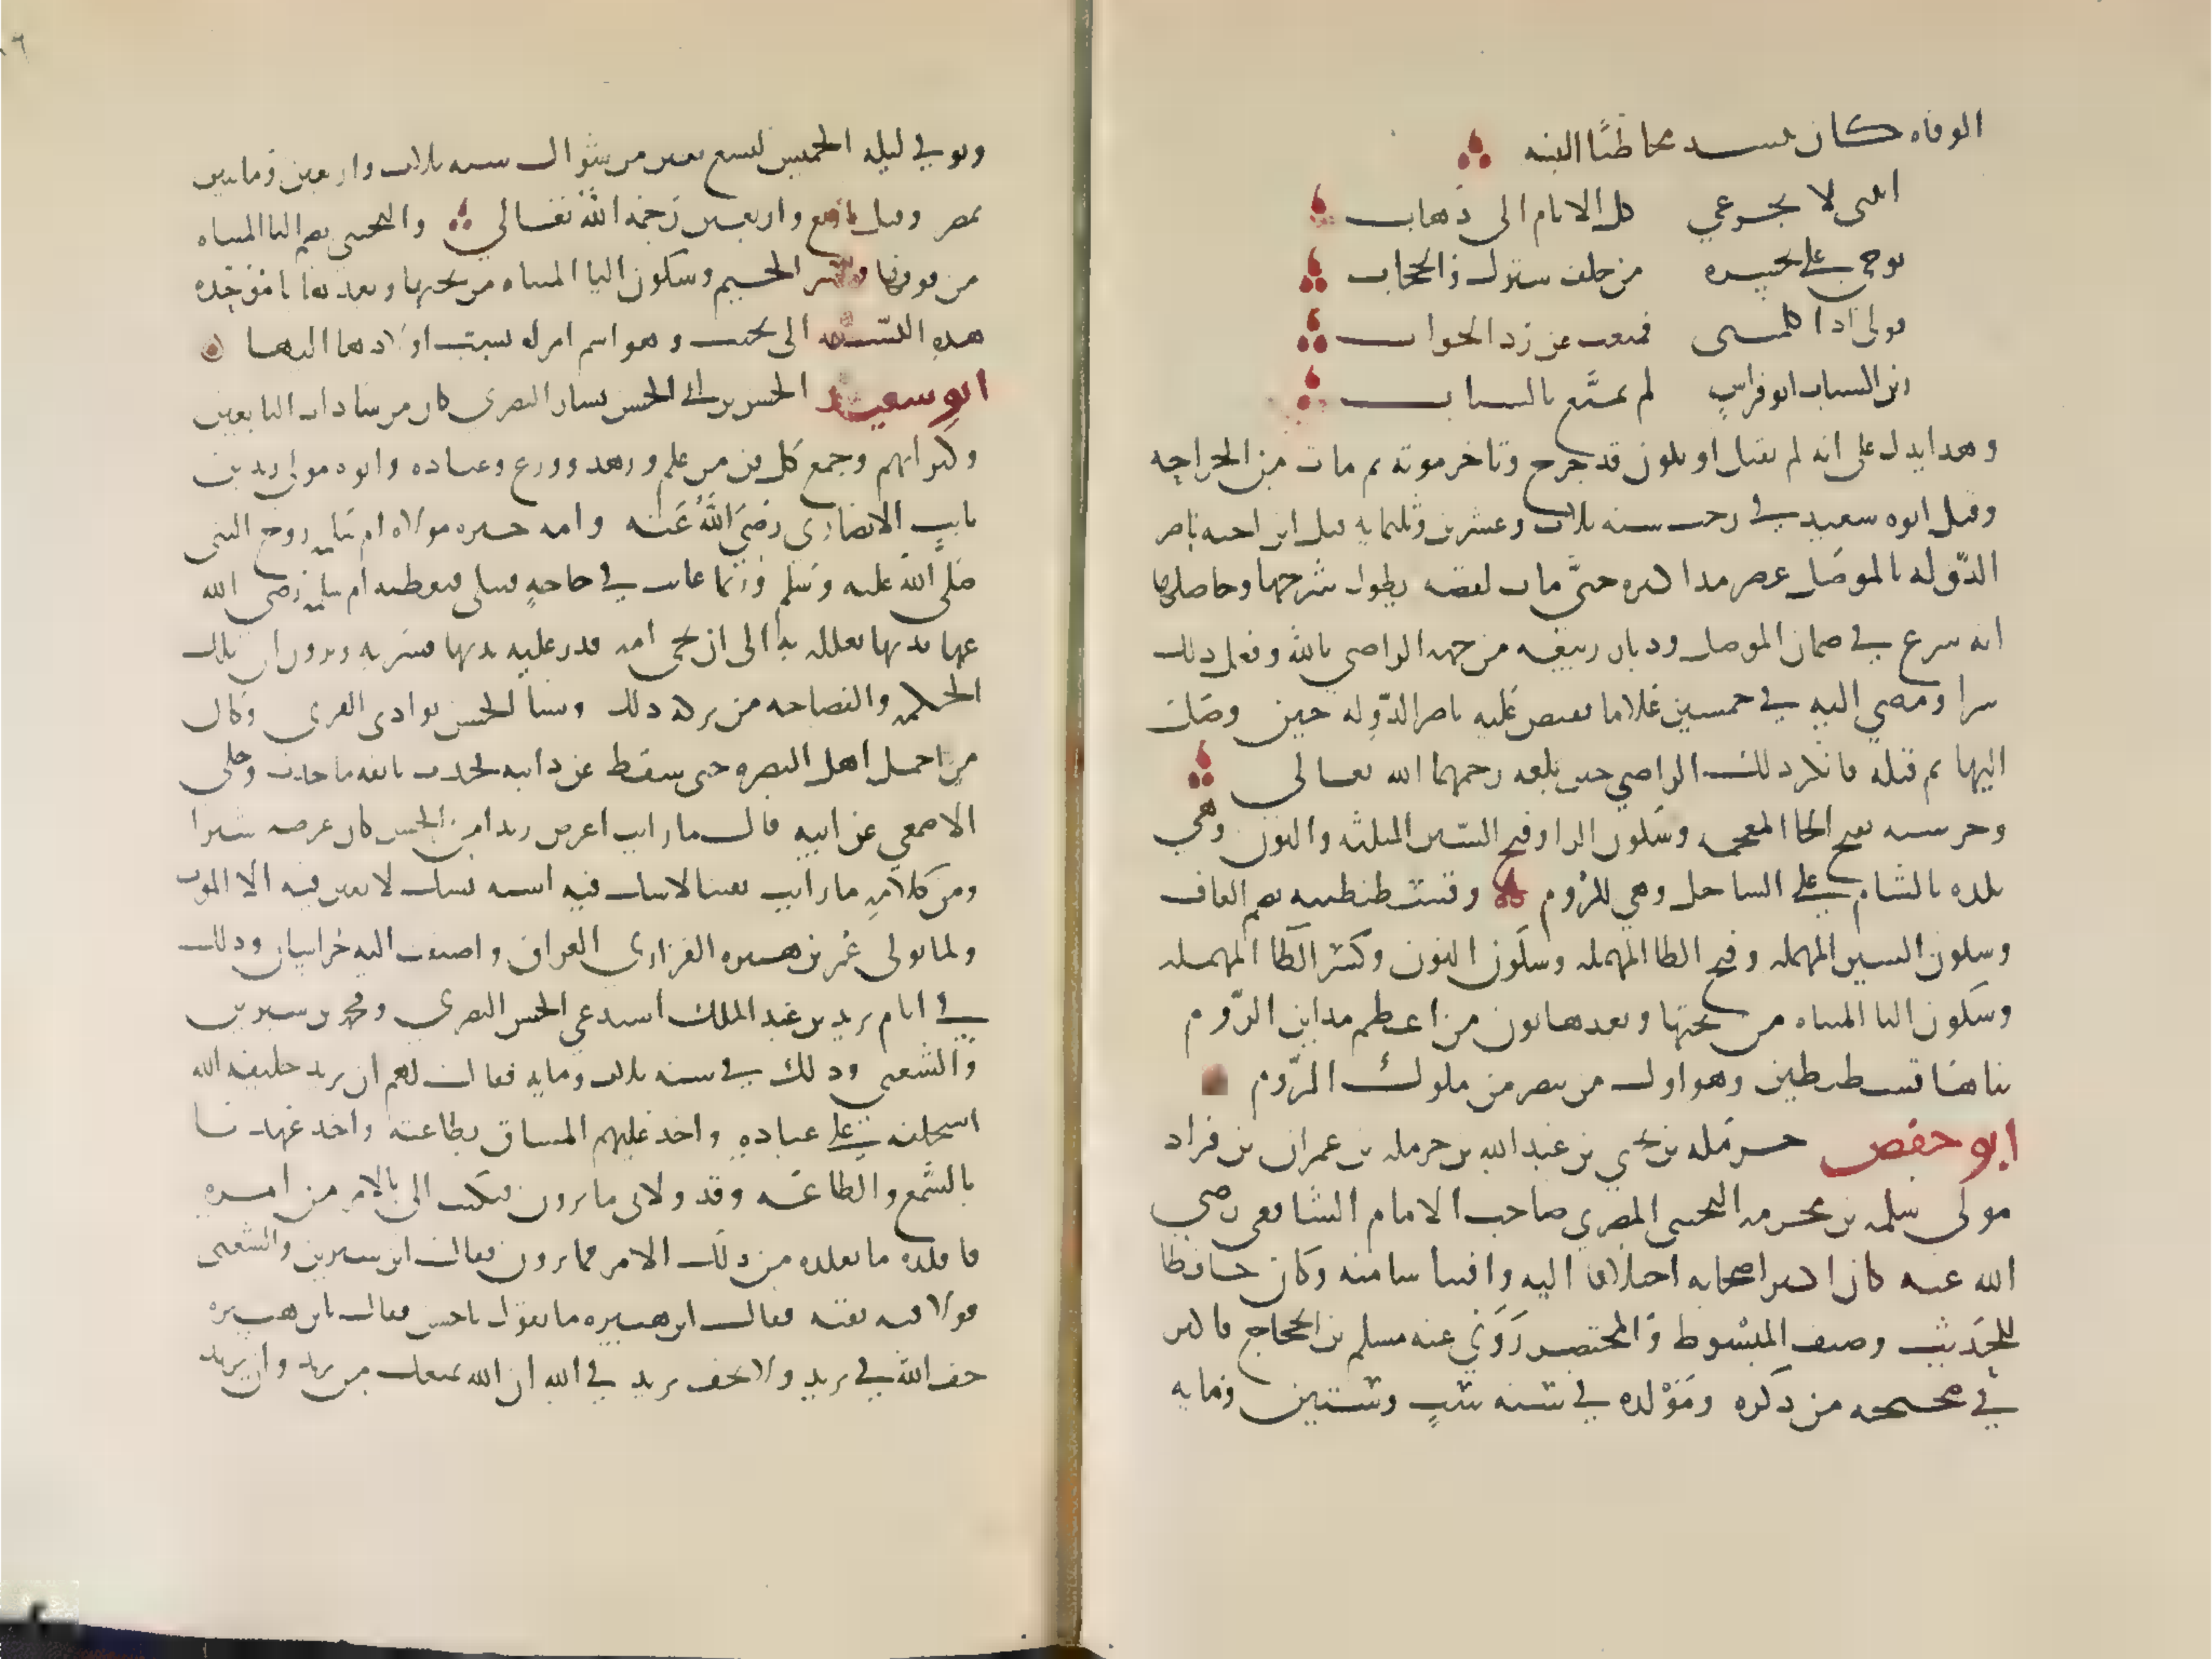 الوفاه كان ينسد مخاطبًا ابنته
ابنتي لا تجزعي كل الانام الى ذهاب
نوحي علي بحسره من خلف سترك والحجاب
قولي اذا كلمتني فعييت عن رد الجواب
زين الشباب ابو فراسٍ لم يمتَّع بالشباب
وهذا يدل على انه لم يقتل او يكون قد جرح وتاخر موته ثم مات من الجراحه
وقتل ابوه سعيد في رجب سنه ثلاث وعشرين وثلثمايه قتله ابن اخيه ناصر
الدّوله بالموصل عصر مذاكيره حتَّى مات لقصه يطول شرحها وحاصلها
انه شرع في ضمان الموصل وديار ربيعه من جهه الراضي بالله وفعل ذلك
سرا ومضي اليه في خمسين غلاما فقبض عليه ناصر الدّوله حين وصل
اليها ثم قتله فانكر ذلك الراضي حين بلغه رحمهما الله تعالى
وخرشنه بفتح الخا المعجمه وسكون الرا وفتح الشين المثلثه والنون وهي
بلده بالشام على الساحل وهي للروم وقسطنطينيه بضم القاف
وسكون السين المهمله وفتح الطا المهمله وسكون النون وكسر الطا المهمله
وسكون اليا المثناه من تحتها وبعدها نون من اعظم مداين الرّوم
بناها قسطنطين وهو اول من تنصر من ملوك الرّوم
ابو حفص حرمله بن يحيى بن عبد الله بن حرمله بن عمران بن قراد
مولى سلمه بن مخرمه التجيبى المصري صاحب الامام الشافعي رضي
الله عنه كان اكثر اصحابه اختلافا اليه واقتباسا منه وكان حافظا
للحديث وصنف المبسوط والمختصر رَوَي عنه مسلم بن الحجاج فاكثر
في صحيحه من ذكره ومَوْلده في سنه ستٍ وستين ومايه
وتوفي ليله الخميس لتسع بقين من شوال سنه ثلاث واربعين ومايتين
بمصر وقيل اربع واربعين رحمه الله تعالي والتجيبى بضم التا المثناه
من فوقها وكسر الجيم وسكون اليا المثناه من تحتها وبعدها با موحده
هذهِ النسبه الى تجيب وهو اسم امراه نسبت اولادها اليها
ابو سعيد الحسن بن ابي الحسن يسار البصري كان من سادات التابعين
وكبرايهم وجمع كل فن من علم وزهد وورع وعباده وابوه مولى زيد بن
ثابت الانصاري رضيَ اللهُ عَنه وامه خيره مولاه ام سلمه زوج النبي
صلى الله عليه وسلم وربما غابت في حاجهٍ فيبكي فتعطيه ام سلمه رضي الله
عنها ثديها تعلله به الى ان تجي امه فدر عليه ثديها فشربه ويرون ان تلك
الحكمه والفصاحه من بركه ذلك ونشا الحسن بوادي القرى وكان
من اجمل اهل البصره حتى سقط عن دابته فحدث بانفه ما حدث وحكى
الاصمعي عن ابيه قال ما رايت اعرض زندا من الحسن كان عرضه شبرا
ومن كلامهِ ما رايت يقينا لا شك فيه اشبه بشك لا يقين فيه الا الموت
ولما تولى عمر بن هبيره الفزاري العراق واضيفت اليه خراسان وذلك
في ايام يزيد بن عبد الملك استدعي الحسن البصري ومحمد بن سيرين
والشعبى وذلك في سنه ثلاث ومايه فقال لهم ان يزيد خليفه الله
استخلفه على عبادهِ واخذ عليهم الميثاق بطاعته واخذ عهدنا
بالسَّمع والطاعَه وقد ولاني ما ترون فيكتب الى بالامر من امره
فاقلده ما تقلده من ذلك الامر فما ترون فقال ابن سيرين والشعبى
قولا فيه تقيه فقال ابن هبيره ما تقول يا حسن فقال يا بن هبيره
خف الله في يزيد ولا تخف يزيد في الله ان الله يمنعك من يزيد وان يزيد